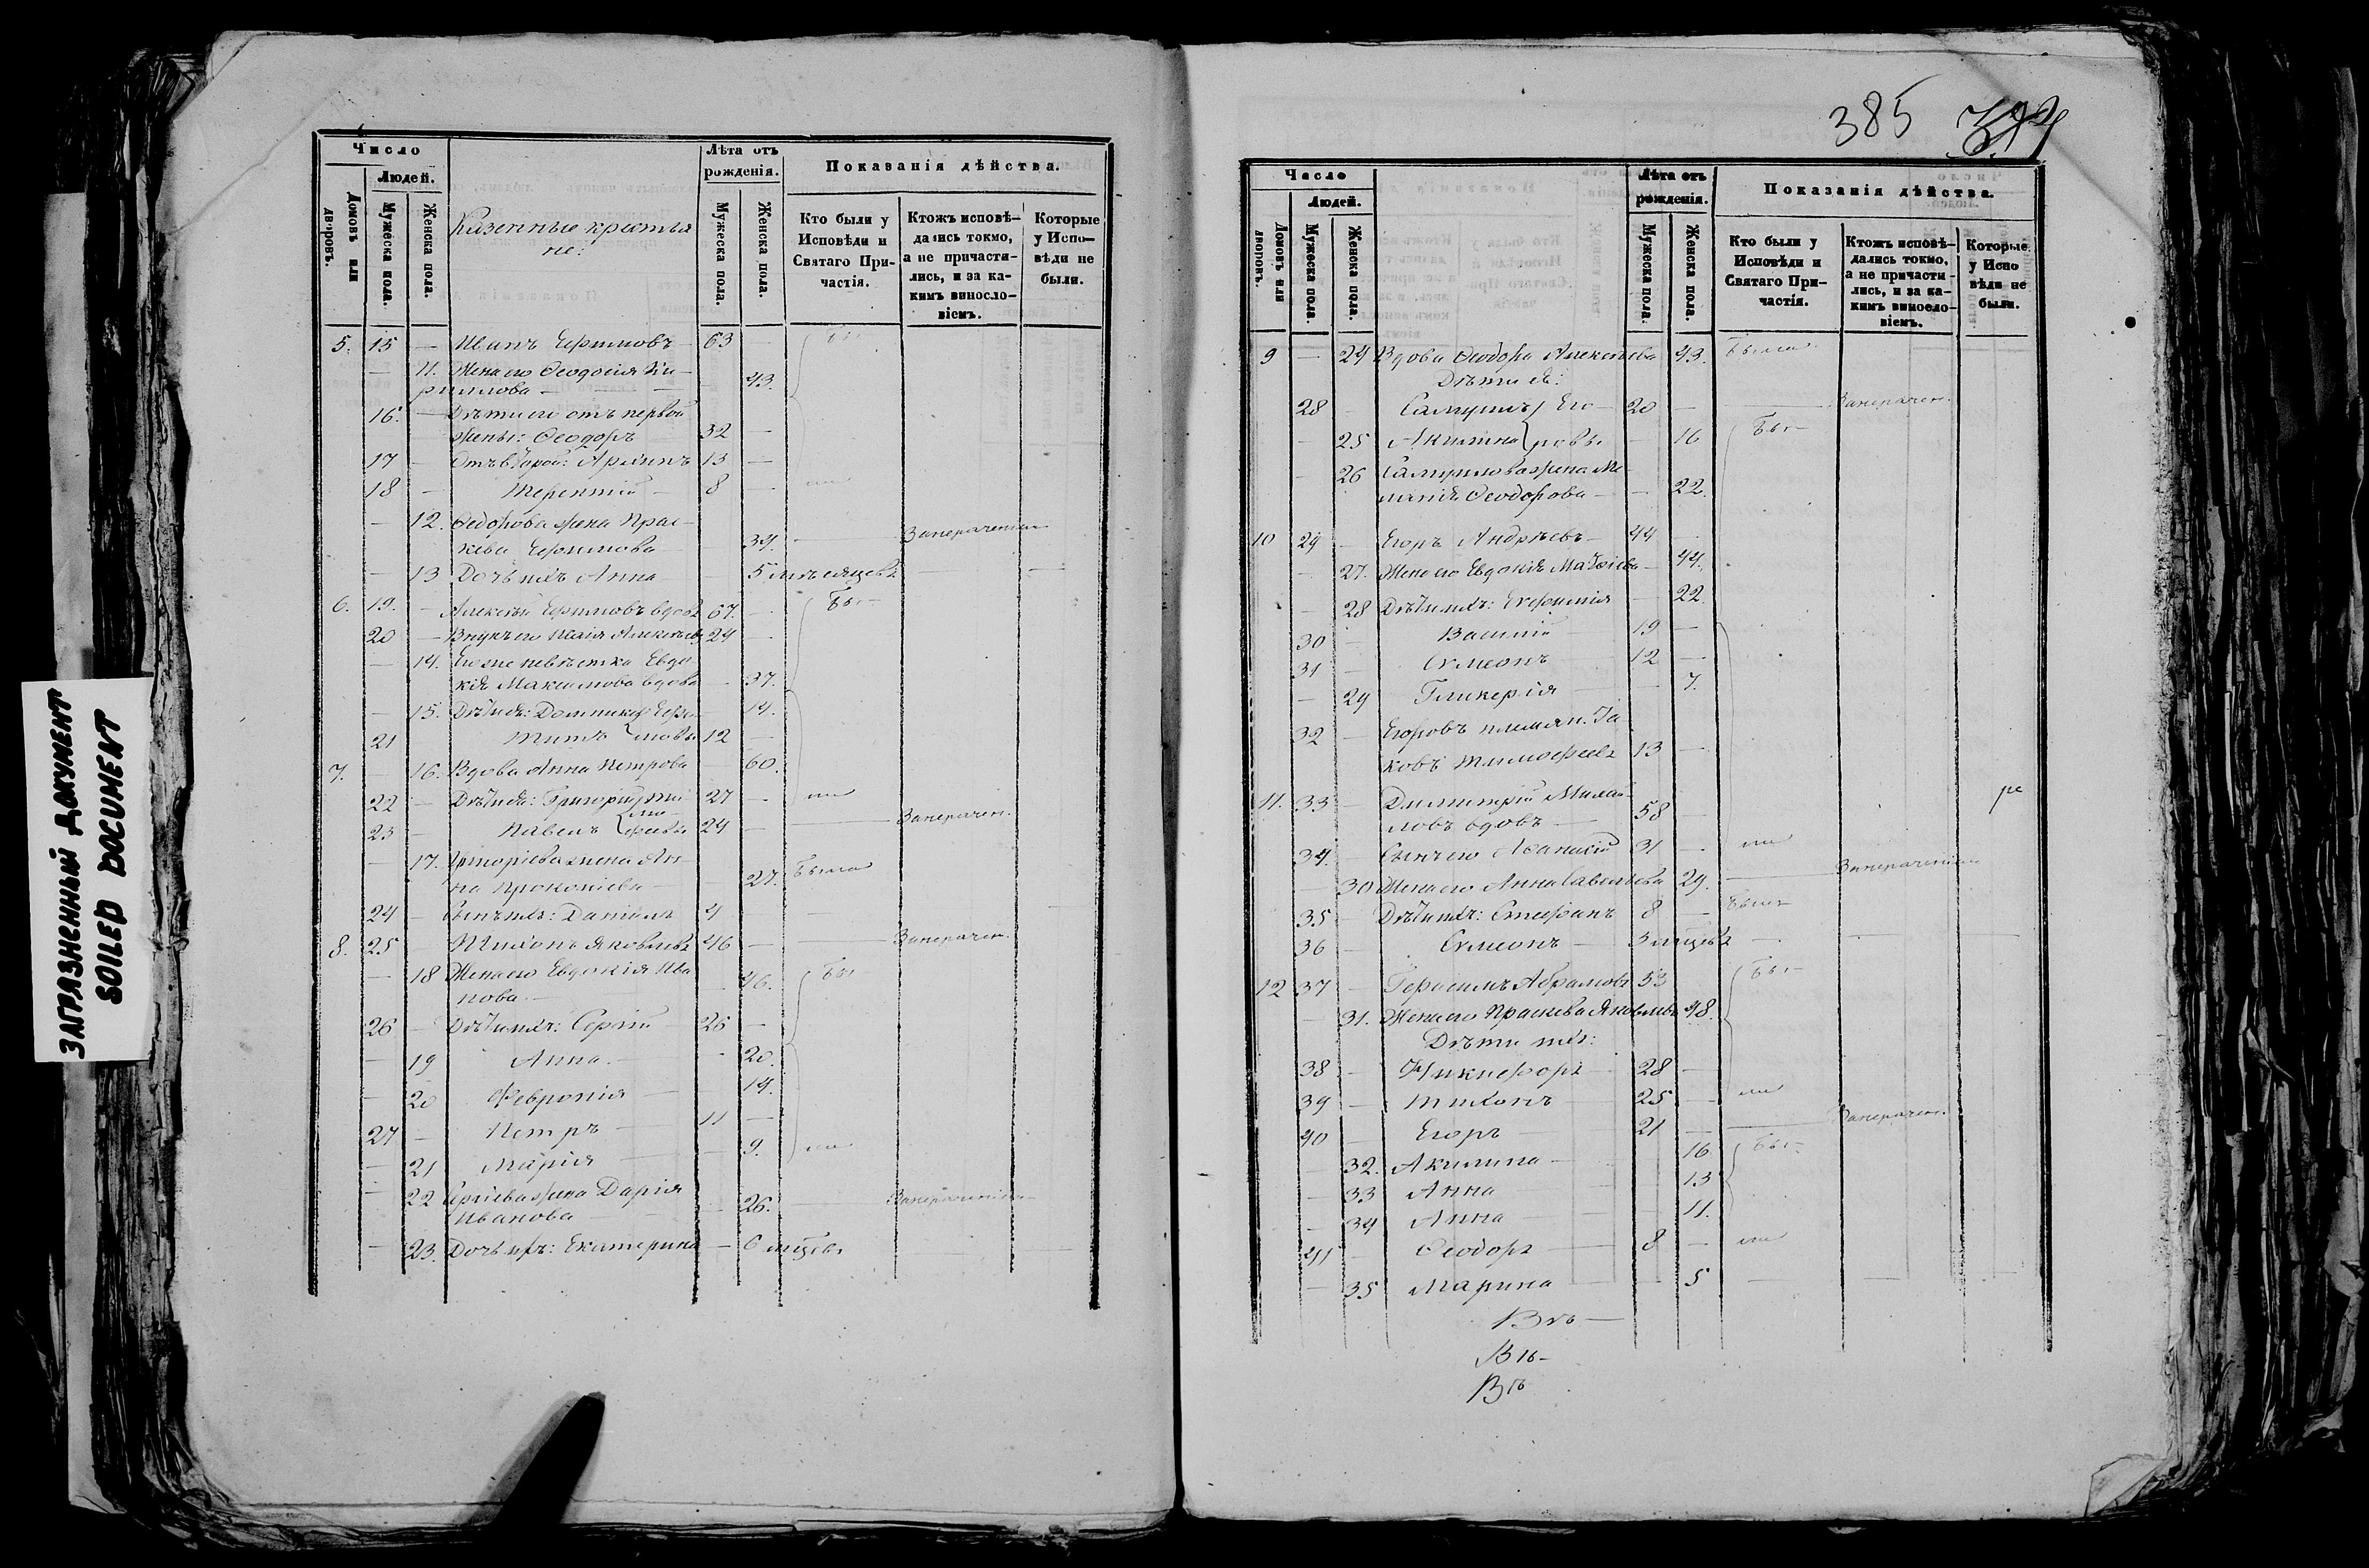 ЗАГРАЗНЕННЫЙ ДОКУМЕНТ
SOILED DOCUMENT
Число
Людей.
Домовъ или дворовъ.
Мужеска пола.
Женска пола.
Казенные крестья
не:
Лѣта отъ рожденія.
Мужеска пола.
Женска пола.
Показанія дѣйства.
Кто были у Исповѣди и Святаго Причастія.
Ктожъ исповѣдались токмо, а не причастились, и за какимъ винословіемъ.
Которые у Исповѣди не были.
5. 15 — Иванъ Ефимовъ 63 — бы
— 11. Жена его Ѳеодосія Ки-
риллова — — 43.
16. — Дѣти его отъ первой
жены: Ѳеодоръ 32 —
17 — Отъ второй: Архипъ 13 —
18 — Терентій — 8 — ли
— 12. Ѳедорова жена Прас-
кева Ефимова — 34. — Занерачениемъ
— 13 Дочь ихъ Анна — 5 мѣсяцевъ — —
6. 19. — Алексѣй Ефимовъ вдовъ 67. — Бы-
20 — Внукъ его Исаія Алексѣевъ 24 —
— 14. Его же невѣстка Евдо
кія Максимова вдова — 37.
— 15. Дѣти ея: Домникія Ефи- 14.
21 Титъ мовы 12 —
7. — 16. Вдова Анна Петрова — 60.
22 — Дѣти ея: Григорій Ти 27 — ли
23 — Павелъ мо-
феевы 24 — — Занерачен.
— 17. Григоріева жена Ан-
на Прокопіева — — 27. Была
24 — Сынъ ихъ: Даніилъ 4 —
8. 25 — Тихонъ Яковлевъ 46 — — Занерачен.
— 18 Жена его Евдокія Ива
нова — — 46. Бы
26 — Дѣти ихъ: Сергій 26 —
— 19 Анна. — 20.
— 20 Февронія — 14.
27 — Петръ — 11 —
— 21 Марія — 9. ли
— 22 Сергіева жена Дарія
Иванова — 26. — Занерачениемъ
— 23. Дочь ихъ: Екатерина — 6 мцевъ
385
Число
Людей.
Домовъ или дворовъ.
Мужеска пола.
Женска пола.
Лѣта отъ рожденія.
Мужеска пола.
Женска пола.
Показанія дѣйства.
Кто были у Исповѣди и Святаго Причастія.
Ктожъ исповѣдались токмо, а не причастились, и за какимъ винословіемъ.
Которые у Исповѣди не были.
9 — 24 Вдова Ѳеодора Алексѣева 43. Была
Дѣти ея:
28 — Самуилъ Его- 20 — — Занерачен.
— 25 Акилина ровы — 16 Бы-
— 26 Самуилова жена Ме
ланія Ѳеодорова — — 22.
10 29 — Егоръ Андрѣевъ — 44 —
— 27. Жена его Евдокія Матѳіева — 44.
— 28 Дѣти ихъ: Евфимія — 22.
30 — Василій — 19 —
31 — Сѵмеонъ 12 —
— 29 Гликерія — 7.
32 — Егоровъ племян. Іа-
ковъ Тимофеевъ 13 —
11. 33 — Димитрій Михай-
ловъ вдовъ — 58 — ре
34. — Сынъ его Аѳанасій 31 — ли
— 30 Жена его Анна Савельева 29. — Занерачениемъ
35 — Дѣти ихъ: Стефанъ 8 — Былъ
36 — Сѵмеонъ — 3 мцевъ — — —
12 37 — Герасимъ Абрамовъ 53 Бы-
— 31. Жена его Праскева Яковлева 48.
Дѣти ихъ:
38 — Никифоръ — 28 —
39 — Тихонъ — 25 — ли
40 — Егоръ — 21 — — Занерачен.
— 32. Акилина — 16 Бы-
— 33 Анна — 13
— 34 Анна — 11.
41 — Ѳеодоръ — 8 — ли
— 35 Марина — 5 — —